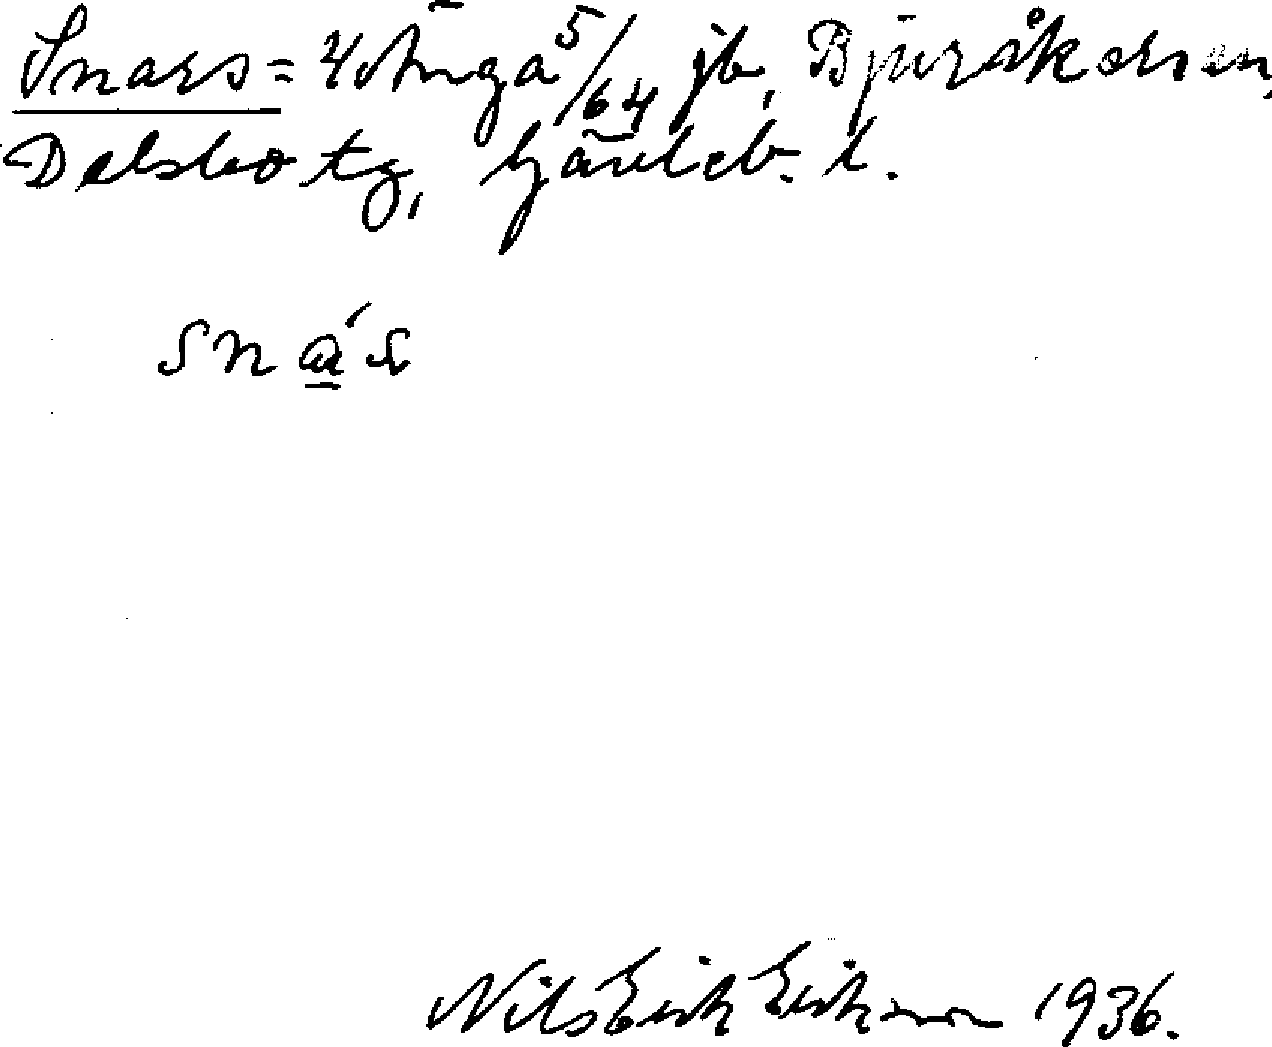 Snars = 4 Änga 5/64 jb, Bjuråkers sn,
Delsbo tg, Gävleb. l.
sna̲´s
Nils Erik Eriksson 1936.